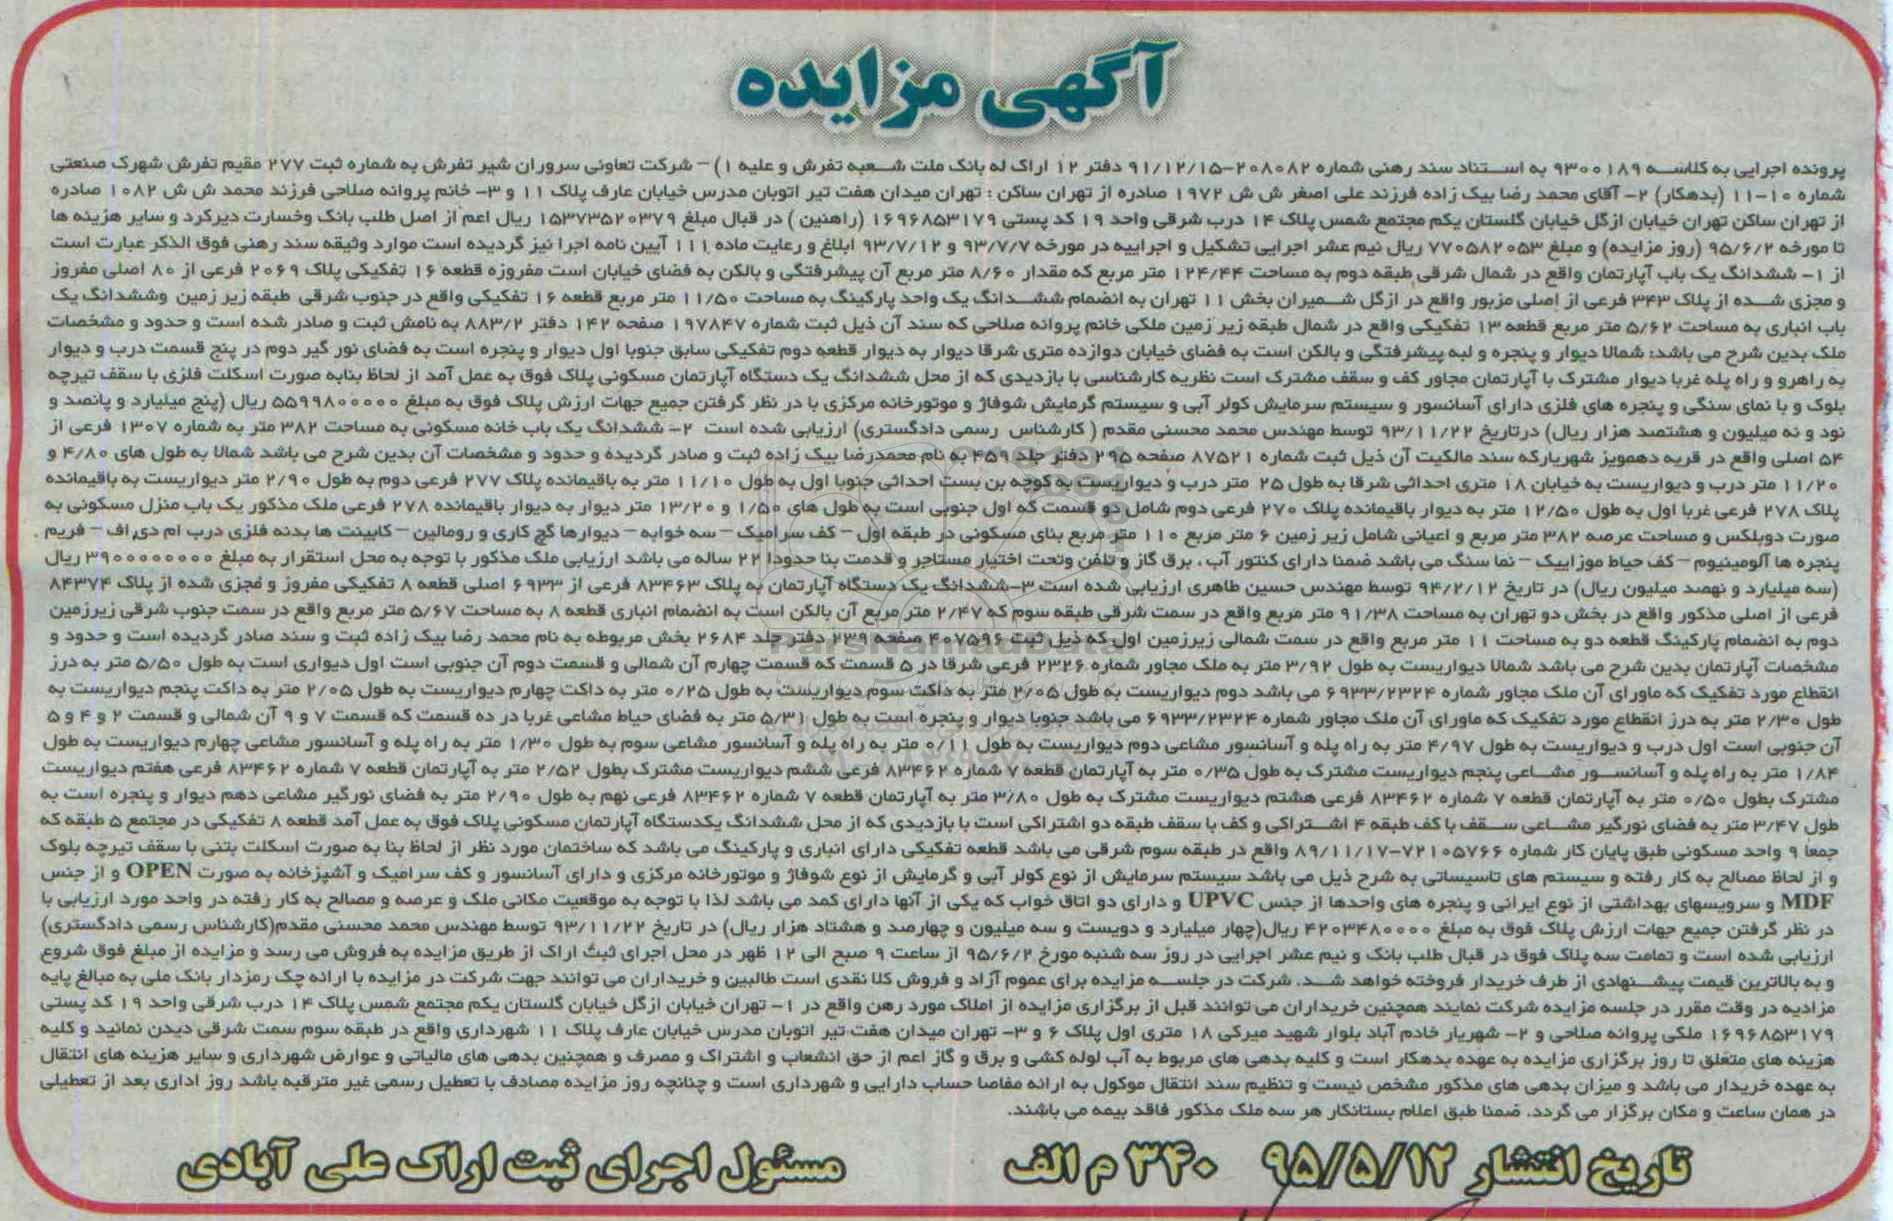 آگهی مزایده
پرونده اجرایی به کلاسه ۹۳۰۰۱۸۹ به استناد سند رهنی شماره ۲۰۸۰۸۲-۹۱/۱۲/۱۵ دفتر ۱۲ اراک له بانک ملت شعبه تفرش و علیه ۱) – شرکت تعاونی سروران شیر تفرش به شماره ثبت ۲۷۷ مقیم تفرش شهرک صنعتی
شماره ۱۰-۱۱ (بدهکار) ۲- آقای محمد رضا بیک زاده فرزند علی اصغر ش ش ۱۹۷۲ صادره از تهران ساکن : تهران میدان هفت تیر اتوبان مدرس خیابان عارف پلاک ۱۱ و ۳- خانم پروانه صلاحی فرزند محمد ش ش ۱۰۸۲ صادره
از تهران ساکن تهران خیابان ازگل خیابان گلستان یکم مجتمع شمس پلاک ۱۴ درب شرقی واحد ۱۹ کد پستی ۱۶۹۶۸۵۳۱۷۹ (راهنین) در قبال مبلغ ۱۵۳۷۳۵۲۰۳۷۹ ریال اعم از اصل طلب بانک وخسارت دیرکرد و سایر هزینه ها
تا مورخه ۹۵/۶/۲ (روز مزایده) و مبلغ ۷۷۰۵۸۲۰۵۳ ریال نیم عشر اجرایی تشکیل و اجراییه در مورخه ۹۳/۷/۷ و ۹۳/۷/۱۲ ابلاغ و رعایت ماده ۱۱۱ آیین نامه اجرا نیز گردیده است موارد وثیقه سند رهنی فوق الذکر عبارت است
از ۱- ششدانگ یک باب آپارتمان واقع در شمال شرقی طبقه دوم به مساحت ۱۲۴/۴۴ متر مربع که مقدار ۸/۶۰ متر مربع آن پیشرفتگی و بالکن به فضای خیابان است مفروزه قطعه ۱۶ تفکیکی پلاک ۲۰۶۹ فرعی از ۸۰ اصلی مفروز
و مجزی شده از پلاک ۳۴۳ فرعی از اصلی مزبور واقع در ازگل شمیران بخش ۱۱ تهران به انضمام ششدانگ یک واحد پارکینگ به مساحت ۱۱/۵۰ متر مربع قطعه ۱۶ تفکیکی واقع در جنوب شرقی طبقه زیر زمین وششدانگ یک
باب انباری به مساحت ۵/۶۲ متر مربع قطعه ۱۳ تفکیکی واقع در شمال طبقه زیر زمین ملکی خانم پروانه صلاحی که سند آن ذیل ثبت شماره ۱۹۷۸۴۷ صفحه ۱۴۲ دفتر ۸۸۳/۲ به نامش ثبت و صادر شده است و حدود و مشخصات
ملک بدین شرح می باشد: شمالا دیوار و پنجره و لبه پیشرفتگی و بالکن است به فضای خیابان دوازده متری شرقا دیوار به دیوار قطعه دوم تفکیکی سابق جنوبا اول دیوار و پنجره است به فضای نور گیر دوم در پنج قسمت درب و دیوار
به راهرو و راه پله غربا دیوار مشترک با آپارتمان مجاور کف و سقف مشترک است نظریه کارشناسی با بازدیدی که از محل ششدانگ یک دستگاه آپارتمان مسکونی پلاک فوق به عمل آمد از لحاظ بنابه صورت اسکلت فلزی با سقف تیرچه
بلوک و با نمای سنگی و پنجره های فلزی دارای آسانسور و سیستم سرمایش کولر آبی و سیستم گرمایش شوفاژ و موتورخانه مرکزی با در نظر گرفتن جمیع جهات ارزش پلاک فوق به مبلغ ۵۵۹۹۸۰۰۰۰۰ ریال (پنج میلیارد و پانصد و
نود و نه میلیون و هشتصد هزار ریال) درتاریخ ۹۳/۱۱/۲۲ توسط مهندس محمد محسنی مقدم ( کارشناس رسمی دادگستری) ارزیابی شده است ۲- ششدانگ یک باب خانه مسکونی به مساحت ۳۸۲ متر به شماره ۱۳۰۷ فرعی از
۵۴ اصلی واقع در قریه دهمویز شهریارکه سند مالکیت آن ذیل ثبت شماره ۸۷۵۲۱ صفحه ۲۹۵ دفتر جلد ۴۵۹ به نام محمدرضا بیک زاده ثبت و صادر گردیده و حدود و مشخصات آن بدین شرح می باشد شمالا به طول های ۴/۸۰ و
۱۱/۲۰ متر درب و دیواریست به خیابان ۱۸ متری احداثی شرقا به طول ۲۵ متر درب و دیواریست به کوچه بن بست احداثی جنوبا اول به طول ۱۱/۱۰ متر به باقیمانده پلاک ۲۷۷ فرعی دوم به طول ۲/۹۰ متر دیواریست به باقیمانده
پلاک ۲۷۸ فرعی غربا اول به طول ۱۲/۵۰ متر به دیوار باقیمانده پلاک ۲۷۰ فرعی دوم شامل دو قسمت که اول جنوبی است به طول های ۱/۵۰ و ۱۳/۲۰ متر دیوار به دیوار باقیمانده ۲۷۸ فرعی ملک مذکور یک باب منزل مسکونی به
صورت دوبلکس و مساحت عرصه ۳۸۲ متر مربع و اعیانی شامل زیر زمین ۶ متر مربع ۱۱۰ متر مربع بنای مسکونی در طبقه اول – کف سرامیک – سه خوابه – دیوارها گچ کاری و رومالین – کابینت ها بدنه فلزی درب ام دی اف – فریم
پنجره ها آلومینیوم – کف حیاط موزاییک – نما سنگ می باشد ضمنا دارای کنتور آب ، برق گاز و تلفن وتحت اختیار مستاجر و قدمت بنا حدودا ۲۲ ساله می باشد ارزیابی ملک مذکور با توجه به محل استقرار به مبلغ ۳۹۰۰۰۰۰۰۰۰ ریال
(سه میلیارد و نهصد میلیون ریال) در تاریخ ۹۴/۲/۱۲ توسط مهندس حسین طاهری ارزیابی شده است ۳-ششدانگ یک دستگاه آپارتمان به پلاک ۸۳۴۶۳ فرعی از ۶۹۳۳ اصلی قطعه ۸ تفکیکی مفروز و مجزی شده از پلاک ۸۴۳۷۴
فرعی از اصلی مذکور واقع در بخش دو تهران به مساحت ۹۱/۳۸ متر مربع واقع در سمت شرقی طبقه سوم که ۲/۴۷ متر مربع آن بالکن است به انضمام انباری قطعه ۸ به مساحت ۵/۶۷ متر مربع واقع در سمت جنوب شرقی زیرزمین
دوم به انضمام پارکینگ قطعه دو به مساحت ۱۱ متر مربع واقع در سمت شمالی زیرزمین اول که ذیل ثبت ۴۰۷۵۹۶ صفحه ۲۳۹ دفتر جلد ۲۶۸۴ بخش مربوطه به نام محمد رضا بیک زاده ثبت و سند صادر گردیده است و حدود و
مشخصات آپارتمان بدین شرح می باشد شمالا دیواریست به طول ۳/۹۲ متر به ملک مجاور شماره ۲۳۲۶ فرعی شرقا در ۵ قسمت که قسمت چهارم آن شمالی و قسمت دوم آن جنوبی است اول دیواری است به طول ۵/۵۰ متر به درز
انقطاع مورد تفکیک که ماورای آن ملک مجاور شماره ۶۹۳۳/۲۳۲۴ می باشد دوم دیواریست به طول ۲/۰۵ متر به داکت سوم دیواریست به طول ۰/۲۵ متر به داکت چهارم دیواریست به طول ۲/۰۵ متر به داکت پنجم دیواریست به
طول ۲/۳۰ متر به درز انقطاع مورد تفکیک که ماورای آن ملک مجاور شماره ۶۹۳۳/۲۳۲۴ می باشد جنوبا دیوار و پنجره است به طول ۵/۳۱ متر به فضای حیاط مشاعی غربا در ده قسمت که قسمت ۷ و ۹ آن شمالی و قسمت ۲ و ۴ و ۵
آن جنوبی است اول درب و دیواریست به طول ۴/۹۷ متر به راه پله و آسانسور مشاعی دوم دیواریست به طول ۰/۱۱ متر به راه پله و آسانسور مشاعی سوم به طول ۱/۳۰ متر به راه پله و آسانسور مشاعی چهارم دیواریست به طول
۱/۸۴ متر به راه پله و آسانسور مشاعی پنجم دیواریست مشترک به طول ۰/۳۵ متر به آپارتمان قطعه ۷ شماره ۸۳۴۶۲ فرعی ششم دیواریست مشترک بطول ۲/۵۲ متر به آپارتمان قطعه ۷ شماره ۸۳۴۶۲ فرعی هفتم دیواریست
مشترک بطول ۰/۵۰ متر به آپارتمان قطعه ۷ شماره ۸۳۴۶۲ فرعی هشتم دیواریست مشترک به طول ۳/۸۰ متر به آپارتمان قطعه ۷ شماره ۸۳۴۶۲ فرعی نهم به طول ۲/۹۰ متر به فضای نورگیر مشاعی دهم دیوار و پنجره است به
طول ۳/۴۷ متر به فضای نورگیر مشاعی سقف با کف طبقه ۴ اشتراکی و کف با سقف طبقه دو اشتراکی است با بازدیدی که از محل ششدانگ یکدستگاه آپارتمان مسکونی پلاک فوق به عمل آمد قطعه ۸ تفکیکی در مجتمع ۵ طبقه که
جمعا ۹ واحد مسکونی طبق پایان کار شماره ۷۲۱۰۵۷۶۶-۸۹/۱۱/۱۷ واقع در طبقه سوم شرقی می باشد قطعه تفکیکی دارای انباری و پارکینگ می باشد که ساختمان مورد نظر از لحاظ بنا به صورت اسکلت بتنی با سقف تیرچه بلوک
و از لحاظ مصالح به کار رفته و سیستم های تاسیساتی به شرح ذیل می باشد سیستم سرمایش از نوع کولر آبی و گرمایش از نوع شوفاژ و موتورخانه مرکزی و دارای آسانسور و کف سرامیک و آشپزخانه به صورت OPEN و از جنس
MDF و سرویسهای بهداشتی از نوع ایرانی و پنجره های واحدها از جنس UPVC و دارای دو اتاق خواب که یکی از آنها دارای کمد می باشد لذا با توجه به موقعیت مکانی ملک و عرصه و مصالح به کار رفته در واحد مورد ارزیابی با
در نظر گرفتن جمیع جهات ارزش پلاک فوق به مبلغ ۴۲۰۳۴۸۰۰۰۰ ریال(چهار میلیارد و دویست و سه میلیون و چهارصد و هشتاد هزار ریال) در تاریخ ۹۳/۱۱/۲۲ توسط مهندس محمد محسنی مقدم(کارشناس رسمی دادگستری)
ارزیابی شده است و تمامت سه پلاک فوق در قبال طلب بانک و نیم عشر اجرایی در روز سه شنبه مورخ ۹۵/۶/۲ از ساعت ۹ صبح الی ۱۲ ظهر در محل اجرای ثبت اراک از طریق مزایده به فروش می رسد و مزایده از مبلغ فوق شروع
و به بالاترین قیمت پیشنهادی از طرف خریدار فروخته خواهد شد. شرکت در جلسه مزایده برای عموم آزاد و فروش کلا نقدی است طالبین و خریداران می توانند جهت شرکت در مزایده با ارائه چک رمزدار بانک ملی به مبالغ پایه
مزادیه در وقت مقرر در جلسه مزایده شرکت نمایند همچنین خریداران می توانند قبل از برگزاری مزایده از املاک مورد رهن واقع در ۱- تهران خیابان ازگل خیابان گلستان یکم مجتمع شمس پلاک ۱۴ درب شرقی واحد ۱۹ کد پستی
۱۶۹۶۸۵۳۱۷۹ ملکی پروانه صلاحی و ۲- شهریار خادم آباد بلوار شهید میرکی ۱۸ متری اول پلاک ۶ و ۳- تهران میدان هفت تیر اتوبان مدرس خیابان عارف پلاک ۱۱ شهرداری واقع در طبقه سوم سمت شرقی دیدن نمائید و کلیه
هزینه های متعلق تا روز برگزاری مزایده به عهده بدهکار است و کلیه بدهی های مربوط به آب لوله کشی و برق و گاز اعم از حق انشعاب و اشتراک و مصرف و همچنین بدهی های مالیاتی و عوارض شهرداری و سایر هزینه های انتقال
به عهده خریدار می باشد و میزان بدهی های مذکور مشخص نیست و تنظیم سند انتقال موکول به ارائه مفاصا حساب دارایی و شهرداری است و چنانچه روز مزایده مصادف با تعطیل رسمی غیر مترقبه باشد روز اداری بعد از تعطیلی
در همان ساعت و مکان برگزار می گردد. ضمنا طبق اعلام بستانکار هر سه ملک مذکور فاقد بیمه می باشند.
تاریخ انتشار ۹۵/۵/۱۲ ۳۴۰ م الف مسئول اجرای ثبت اراک علی آبادی
ParsNamadData